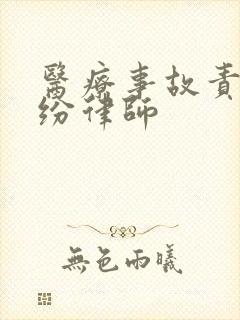 醫療事故責
紛律師
無色雨曦